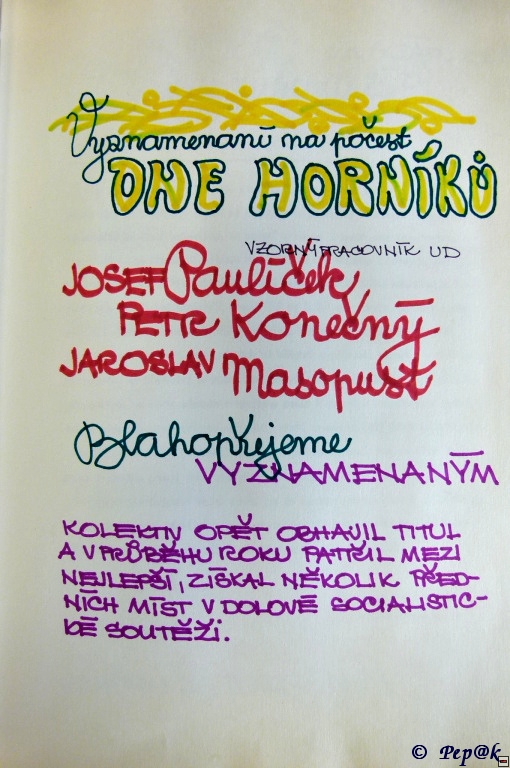 Vyznamenaní na počest
DNE HORNÍKŮ
VZORNÝ PRACOVNÍK UD
JOSEF Paulíček
PETR Konečný
JAROSLAV Masopust
Blahopřejeme
VYZNAMENANÝM
KOLEKTIV OPĚT OBHAJIL TITUL
A V PRŮBĚHU ROKU PATŘIL MEZI
NEJLEPŠÍ, ZÍSKAL NĚKOLIK PŘED-
NÍCH MÍST V DOLOVÉ SOCIALISTIC-
KÉ SOUTĚŽI.
© Pep@k